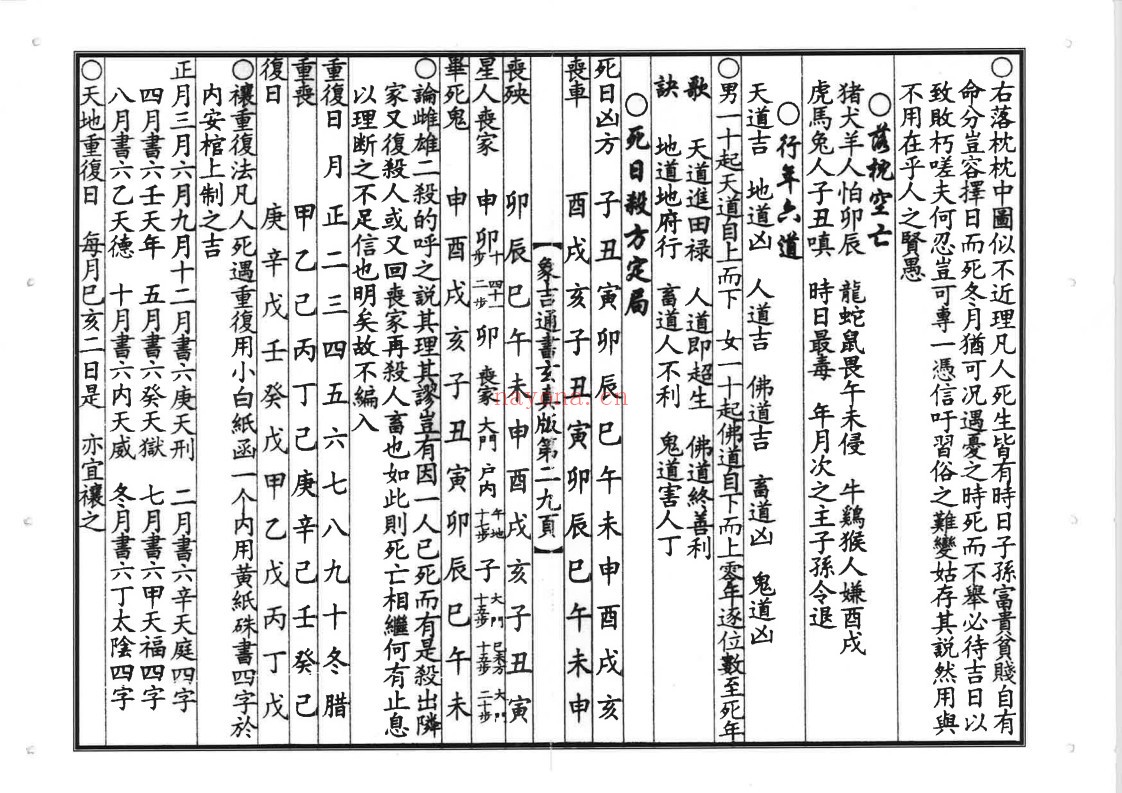 ○右落枕枕中圖似不近理凡人死生皆有時日子孫富貴貧賤自有
命分豈容擇日而死冬月猶可況遇憂之時死而不舉必待吉日以
致敗朽嗟夫何忍豈可專一憑信吁習俗之難變姑存其説然用與
不用在乎人之賢愚
○落枕空亡
猪犬羊人怕卯辰 龍蛇鼠畏午未侵 牛鷄猴人嫌酉戌
虎馬兔人子丑嗔 時日最毒 年月次之主子孫令退
○行年六道
天道吉 地道凶 人道吉 佛道吉 畜道凶 鬼道凶
男一十起天道自上而下 女一十起佛道自下而上零年逐位數至死年
歌 天道進田禄 人道即超生 佛道終善利
訣 地道地府行 畜道人不利 鬼道害人丁
○死日殺方定局
死日凶方 子丑寅卯辰巳午未申酉戌亥
喪車 酉戌亥子丑寅卯辰巳午未申
【象吉通書玄真版第二九頁】
喪殃 卯辰巳午未申酉戌亥子丑寅
星人喪家 申 卯十步 四十一二步 卯 喪家 大門 户内 午地十七步 子 大門十五步 巳未方十五步 大門二十步
畢死鬼 申酉戌亥子丑寅卯辰巳午未
○論雌雄二殺的呼之説其理其謬豈有因一人已死而有是殺出隣
家又復殺人或又回喪家再殺人畜也如此則死亡相繼何有止息
以理斷之不足信也明矣故不編入
重復日 月 正二三四五六七八九十冬腊
重喪 甲乙己丙丁己庚辛己壬癸己
復日 庚辛戊壬癸戊甲乙戊丙丁戊
○禳重復法凡人死遇重復用小白紙函一个内用黄紙硃書四字於
内安棺上制之吉
正月三月六月九月十二月書六庚天刑 二月書六辛天庭四字
四月書六壬天年 五月書六癸天獄 七月書六甲天福四字
八月書六乙天德 十月書六内天威 冬月書六丁太陰四字
○天地重復日 每月巳亥二日是 亦宜禳之
nayona.cn